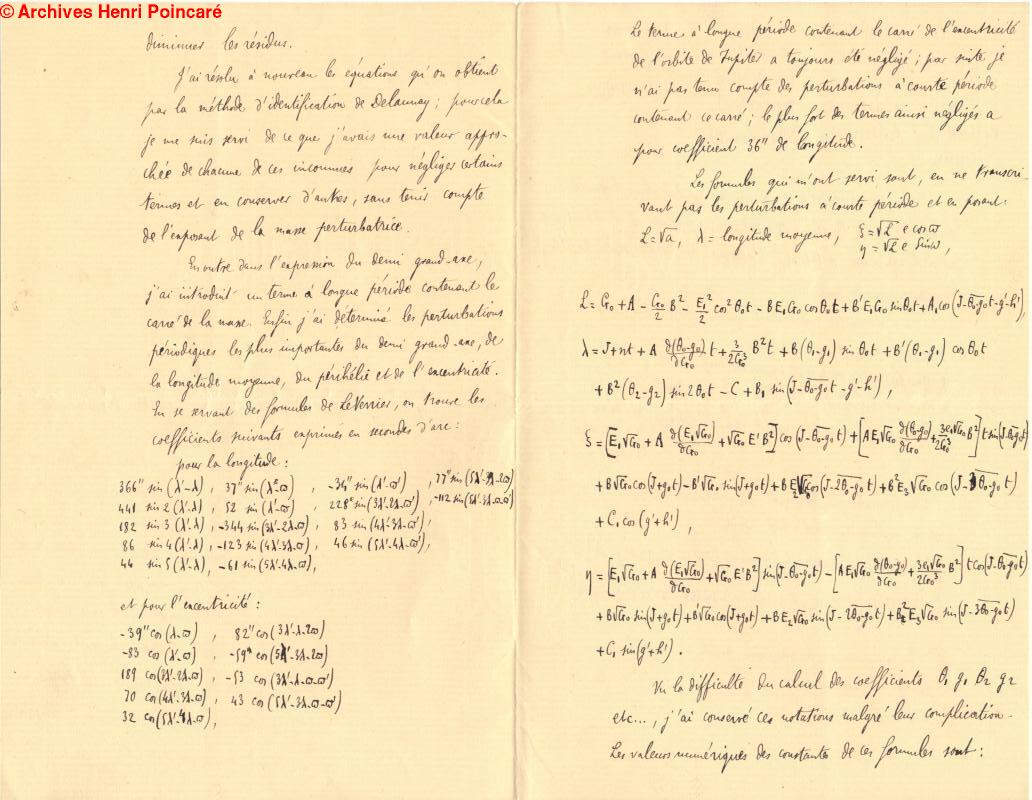 © Archives Henri Poincaré
diminuer les résidus.
J'ai résolu à nouveau les équations qu'on obtient
par la méthode d'identification de Delaunay ; pour cela
je me suis servi de ce que j'avais une valeur appro-
chée de chacune de ces inconnues pour négliger certains
termes et en conserver d'autres, sans tenir compte
de l'exposant de la masse perturbatrice.
En outre dans l'expression du demi grand-axe,
j'ai introduit un terme à longue période contenant le
carré de la masse. Enfin j'ai déterminé les perturbations
périodiques les plus importantes du demi grand-axe, de
la longitude moyenne, du périhélie et de l'excentricité.
En se servant des formules de Le Verrier, on trouve les
coefficients suivants exprimés en secondes d'arc :
pour la longitude :
366" sin (λ'-λ) , 37" sin(λ-ϖ) , -34" sin(λ'-ϖ') , 77" sin(5λ'-3λ-2ϖ)
441 sin 2(λ'-λ) , 52 sin(λ'-ϖ) , 228" sin(3λ'-2λ-ϖ') , -112 sin(5λ'-3λ-ϖ-ϖ')
182 sin 3(λ'-λ) , -344 sin(3λ'-2λ-ϖ) , 83 sin(4λ'-3λ-ϖ') ,
86 sin 4(λ'-λ) , -123 sin(4λ'-3λ-ϖ) , 46 sin(5λ'-4λ-ϖ'),
44 sin 5(λ'-λ), -61 sin(5λ'-4λ-ϖ),
et pour l'excentricité :
-39" cos(λ-ϖ) , 82" cos(3λ'-λ-2ϖ)
-83 cos(λ'-ϖ) , -59" cos(5λ'-3λ-2ϖ)
189 cos(3λ'-2λ-ϖ) , -53 cos(3λ'-λ-ϖ-ϖ')
70 cos(4λ'-3λ-ϖ) , 43 cos(5λ'-3λ-ϖ-ϖ')
32 cos(5λ'-4λ-ϖ),
Le terme à longue période contenant le carré de l'excentricité
de l'orbite de Jupiter a toujours été négligé ; par suite je
n'ai pas tenu compte des perturbations à courte période
contenant ce carré ; le plus fort des termes ainsi négligés a
pour coefficient 36" de longitude.
Les formules qui m'ont servi sont, en ne transcri-
vant pas les perturbations à courte période et en posant :
L=√a, λ = longitude moyenne, ξ=√L e cos ϖ
η = √L e sin ϖ ,
L = G₀ + A - G₀/2 B² - E₁²/2 cos² θ₀t - B E₁ G₀ cos θ₀t + B' E₁ G₀ sin θ₀t + A₁ cos(J-θ₀-g₀t-g'-h'),
λ = J+nt + A ∂(θ₀-g₀)/∂G₀ t + 3/2G₀³ B²t + B(θ₁-g₁) sin θ₀t + B'(θ₁-g₁) cos θ₀t
+ B²(θ₂-g₂) sin 2θ₀t - C + B₁ sin(J-θ₀-g₀t-g'-h') ,
ξ = [E₁√G₀ + A ∂(E₁√G₀)/∂G₀ + √G₀ E' B²] cos(J-θ₀-g₀t) + [A E₁√G₀ ∂(θ₀-g₀)/∂G₀ + 3e₁√G₀/2G₀³ B²] t sin(J-θ₀-g₀t)
+ B√G₀ cos(J+g₀t) - B'√G₀ sin(J+g₀t) + B E₂√G₀ cos(J-2θ₀-g₀t) + B² E₃√G₀ cos(J-3θ₀-g₀t)
+ C₁ cos(g'+h') ,
η = [E₁√G₀ + A ∂(E₁√G₀)/∂G₀ + √G₀ E' B²] sin(J-θ₀-g₀t) - [A E₁√G₀ ∂(θ₀-g₀)/∂G₀ + 3e₁√G₀/2G₀³ B²] t cos(J-θ₀-g₀t)
+ B√G₀ sin(J+g₀t) + B'√G₀ cos(J+g₀t) + B E₂√G₀ sin(J-2θ₀-g₀t) + B² E₃√G₀ sin(J-3θ₀-g₀t)
+ C₁ sin(g'+h') .
Vu la difficulté du calcul des coefficients θ₁ g₁ θ₂ g₂
etc..., j'ai conservé ces notations malgré leur complication.
Les valeurs numériques des constantes de ces formules sont :